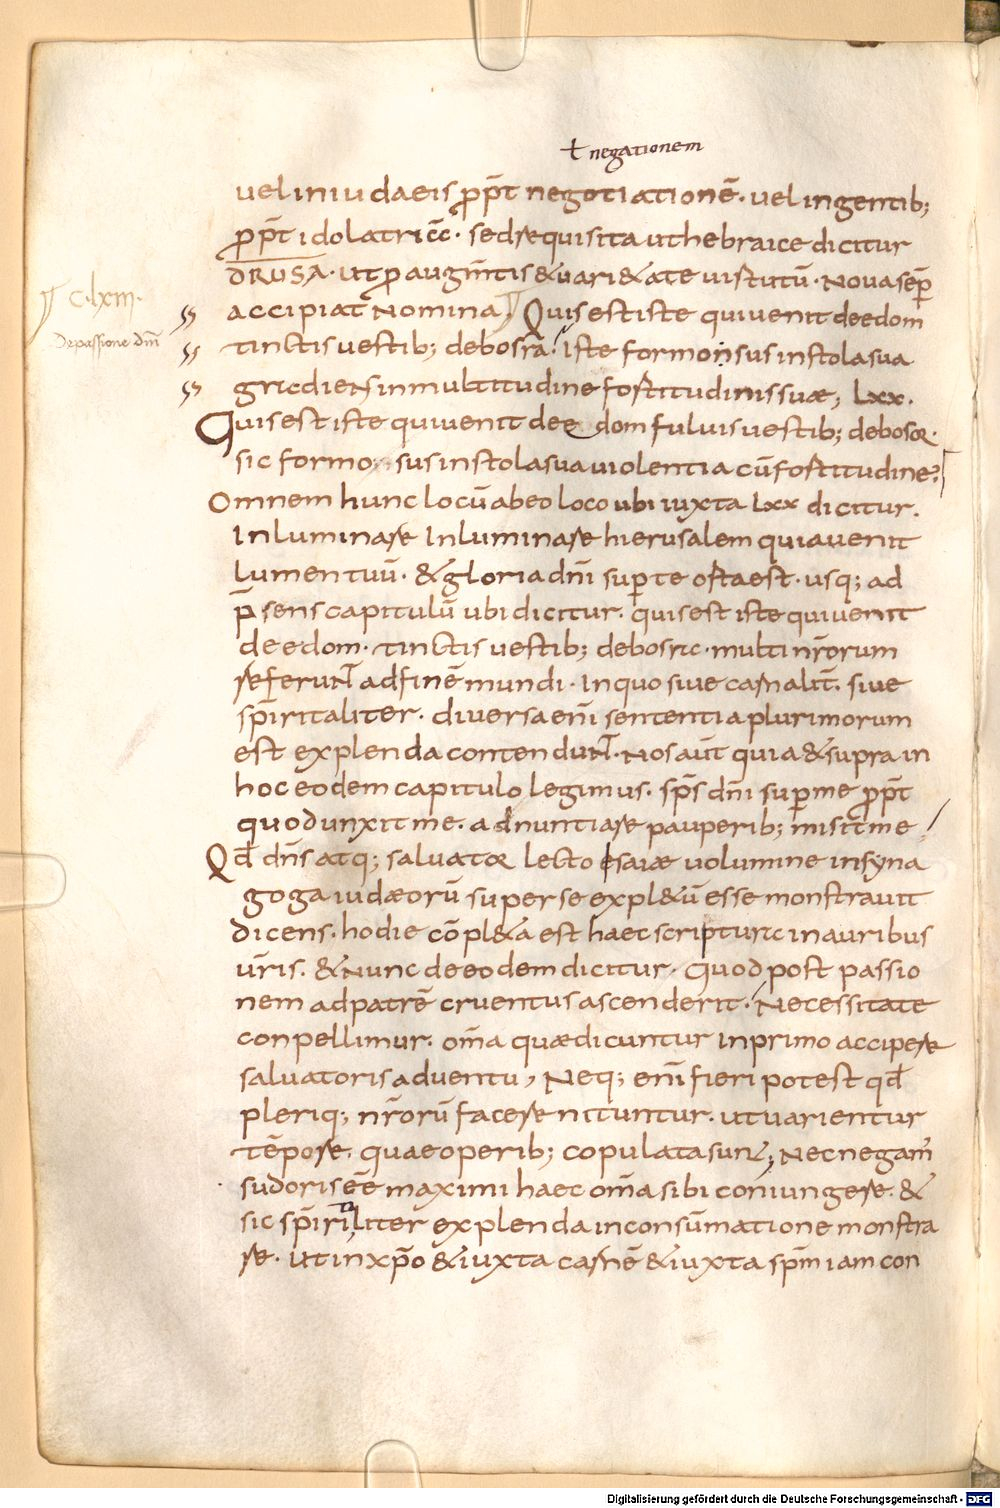 ł negationem
uel iniudaeis ꝓpt̄ negotiationē· uel ingentib;
ꝓpt̄ idolatricc̄· sed sequisita uthebraice dicitur
DRUSA· ut ꝓ augm̄tis &uari&ate uistutū· Noua semꝑ
accipiat Nomina, Quis est iste qui uenit deedom
C·lxiii·
De passione dn̄i
tinctis uestib; de bosra. Iste formonsus in stola sua
gradiens in multitudine fortitudinis suae; Lxx·
Quis est iste qui uenit de edom fuluis uestib; de bosor·
sic formo sus in stola sua uiolentia cū fortitudine?
Omnem hunc locū abeo loco ubi iuxta Lxx dicitur.
Inluminare Inluminare hierusalem quia uenit
lumen tuū· & gloria dn̄i suꝑ te orta est· usq; ad
p̄sens capitulū ubi dicitur· quis est iste qui uenit
de edom· tinctis uestib; de bosra· multi nr̄orum
referunt ad finē mundi· In quo siue carnalit̄· siue
sp̄iritaliter· diuersa eni̅ sententia plurimorum
est explenda contendunt· Nos aut̄ quia & supra in
hoc eodem capitulo legimus· sp̄s dn̄i suꝑ me ꝓpt̄
quod unxit me· adnuntiare pauperib; misit me
Qd̄ dn̄s atq; saluator lecto esaiae uolumine in syna
goga iudaeorū super se expl&ū esse monstrauit
dicens· hodie cōpl&a est haec scriptura in auribus
ur̄is· & Nunc de eodem dicitur· quod post passio
nem ad patrē cruentus ascenderit· Necessitate
conpellimur· om̄a quae dicuntur in primo accipere
saluatoris aduentu, Neq; eni̅ fieri potest qd̄
pleriq; nr̄orū facere nituntur· ut uarientur
tēpore· quae operib; copulata sunt; Nec negam̄
sudoris eē̄ maximi haec om̄a sibi coniungere· &
sic sp̄iritaliter explenda in consūmatione monstra
re· ut in xp̄o & iuxta carnē & iuxta sp̄m iam con
Digitalisierung gefördert durch die Deutsche Forschungsgemeinschaft - DFG